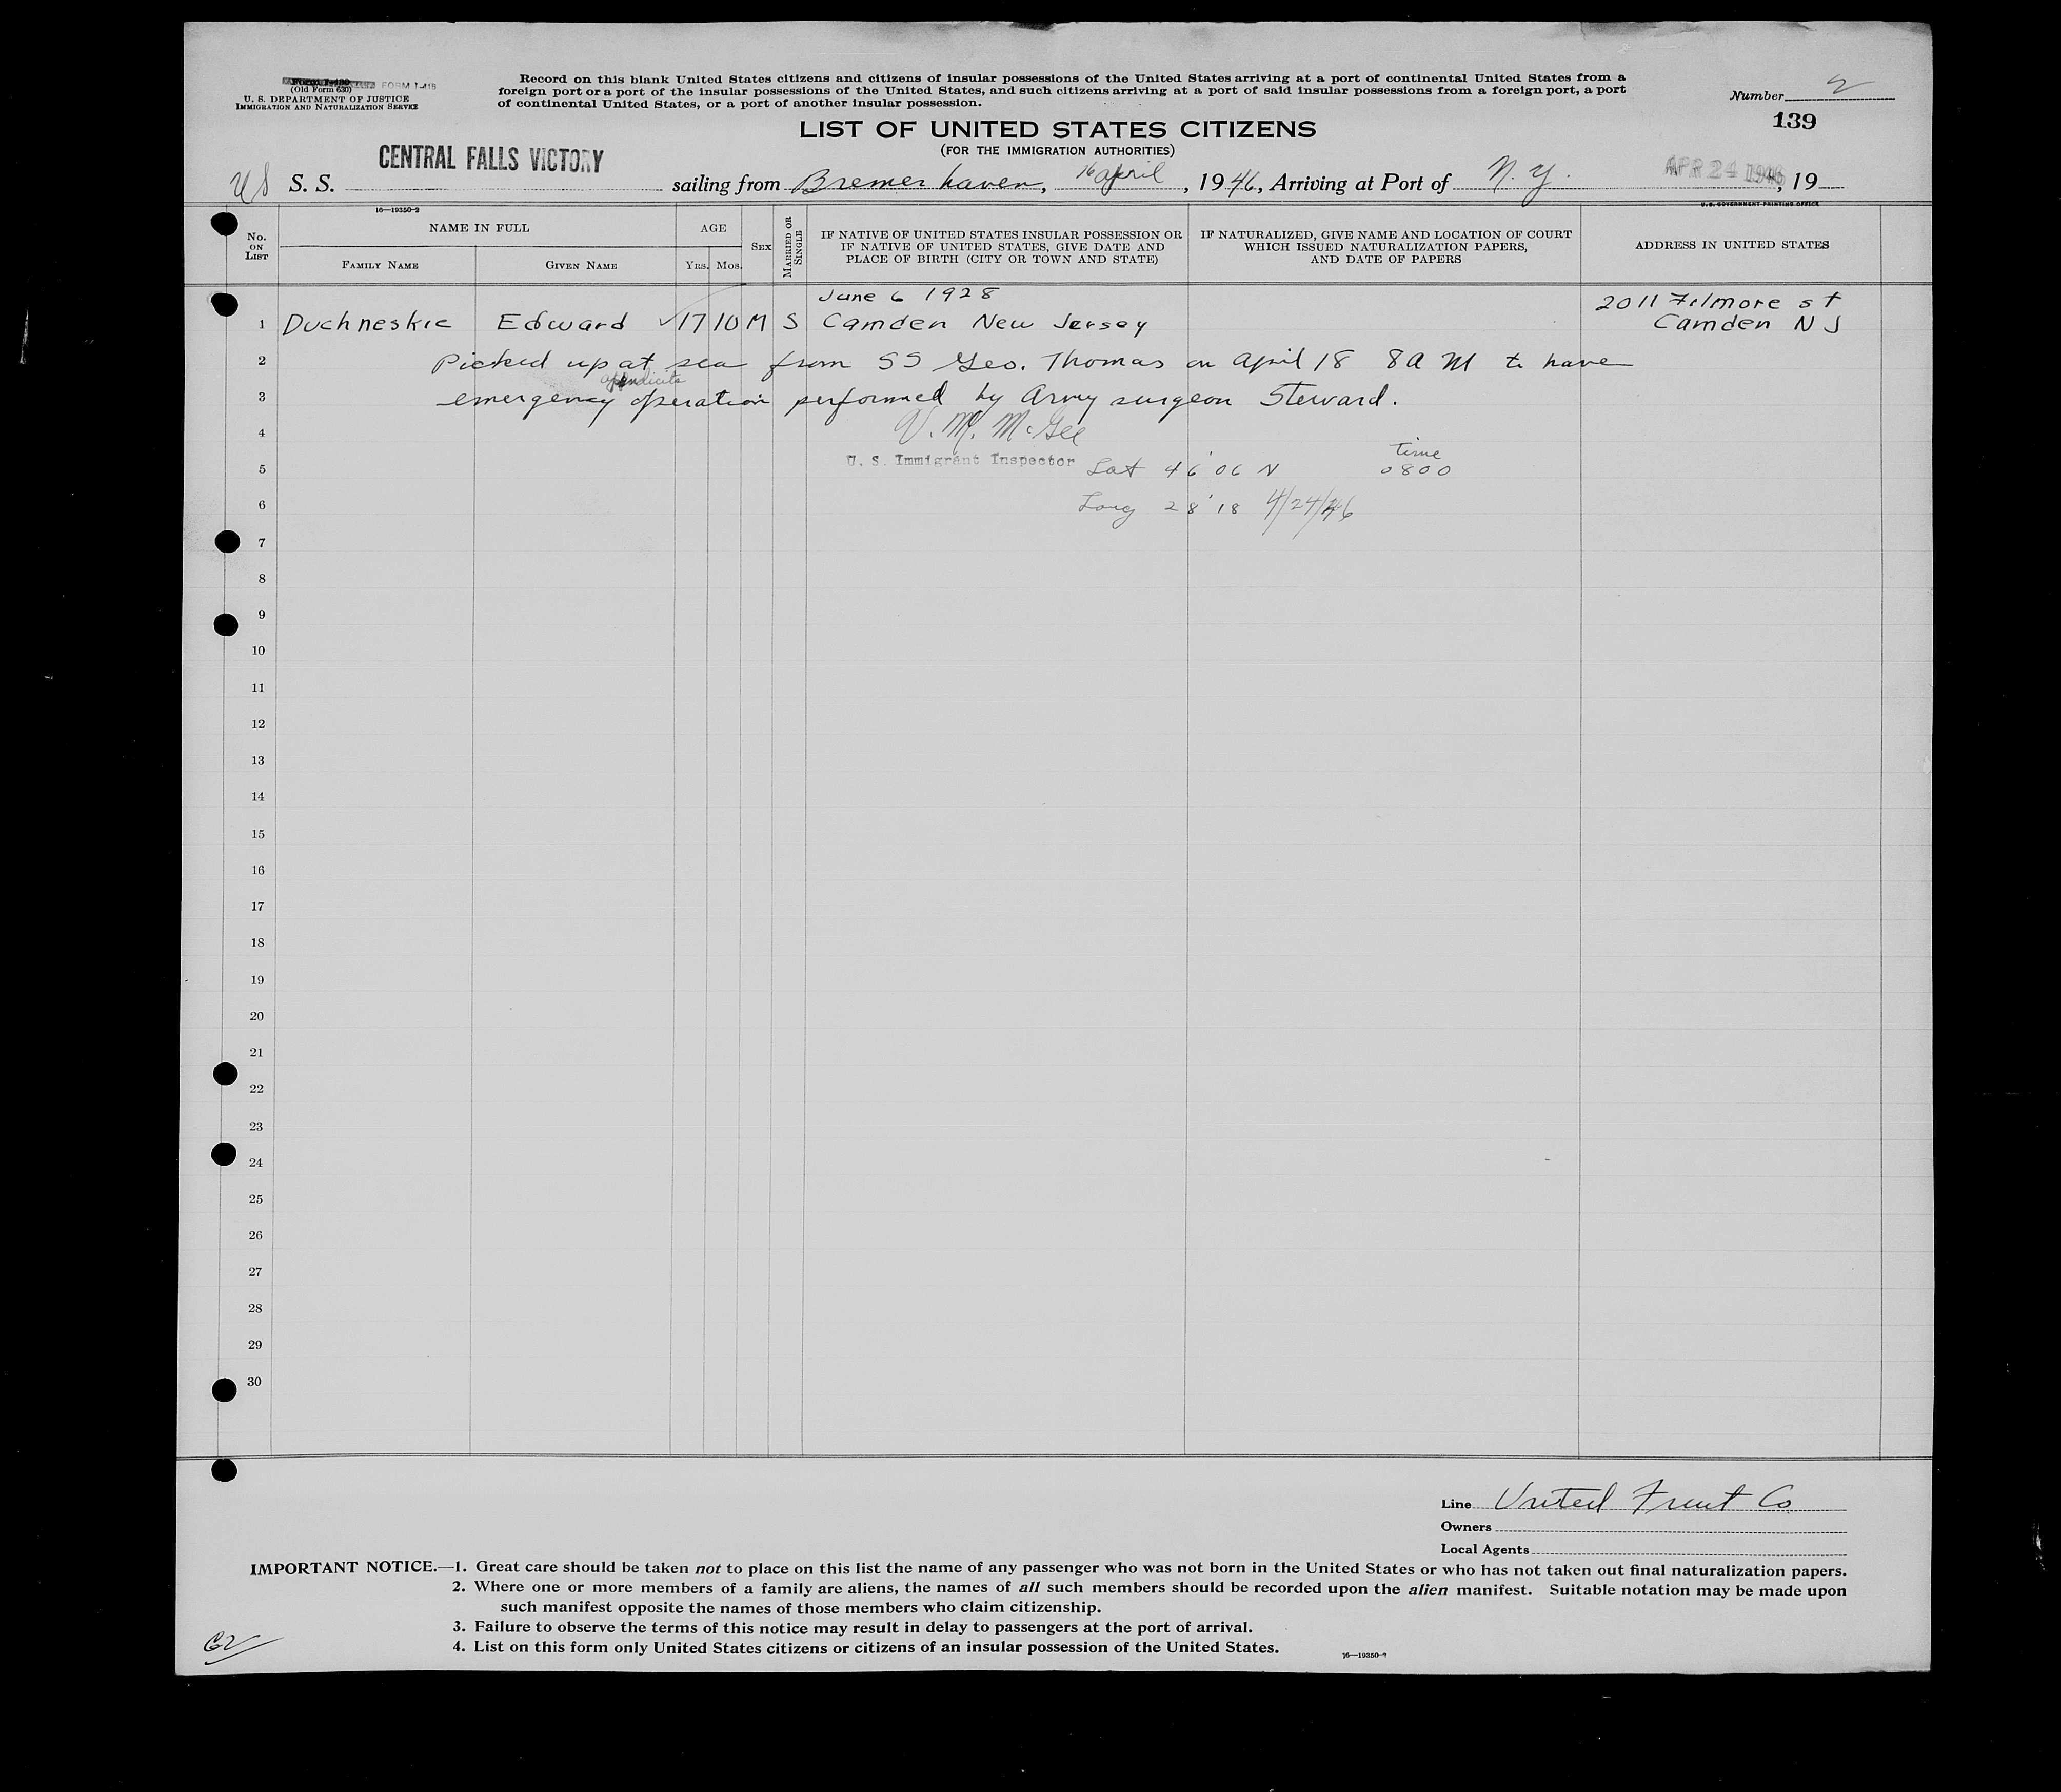 (Old Form 630) FORM I-418
U. S. DEPARTMENT OF JUSTICE
IMMIGRATION AND NATURALIZATION SERVICE
Record on this blank United States citizens and citizens of insular possessions of the United States arriving at a port of continental United States from a
foreign port or a port of the insular possessions of the United States, and such citizens arriving at a port of said insular possessions from a foreign port, a port
of continental United States, or a port of another insular possession.
Number 2
139
LIST OF UNITED STATES CITIZENS
(FOR THE IMMIGRATION AUTHORITIES)
US S. S. CENTRAL FALLS VICTORY sailing from Bremerhaven, 16 april, 1946, Arriving at Port of N. Y. APR 24 1946, 19
U. S. GOVERNMENT PRINTING OFFICE
16—19350-2
No. ON LIST
NAME IN FULL
FAMILY NAME
GIVEN NAME
AGE
YRS. MOS.
SEX
MARRIED OR SINGLE
IF NATIVE OF UNITED STATES INSULAR POSSESSION OR
IF NATIVE OF UNITED STATES, GIVE DATE AND
PLACE OF BIRTH (CITY OR TOWN AND STATE)
IF NATURALIZED, GIVE NAME AND LOCATION OF COURT
WHICH ISSUED NATURALIZATION PAPERS,
AND DATE OF PAPERS
ADDRESS IN UNITED STATES
June 6 1928 2011 Filmore st
1 Duchneskie Edward 17 10 M S Camden New Jersey Camden N J
2 Picked up at sea from SS Geo. Thomas on april 18 8 a M to have
apendicitis
3 emergency operation performed by Army surgeon Steward.
4 V. M. McGee
time
5 U. S. Immigrant Inspector Lat 46' 06 N 0800
6 Long 28' 18 4/24/46
7
8
9
10
11
12
13
14
15
16
17
18
19
20
21
22
23
24
25
26
27
28
29
30
Line United Fruit Co
Owners
Local Agents
IMPORTANT NOTICE.—1. Great care should be taken not to place on this list the name of any passenger who was not born in the United States or who has not taken out final naturalization papers.
2. Where one or more members of a family are aliens, the names of all such members should be recorded upon the alien manifest. Suitable notation may be made upon
such manifest opposite the names of those members who claim citizenship.
3. Failure to observe the terms of this notice may result in delay to passengers at the port of arrival.
4. List on this form only United States citizens or citizens of an insular possession of the United States.
16—19350-2